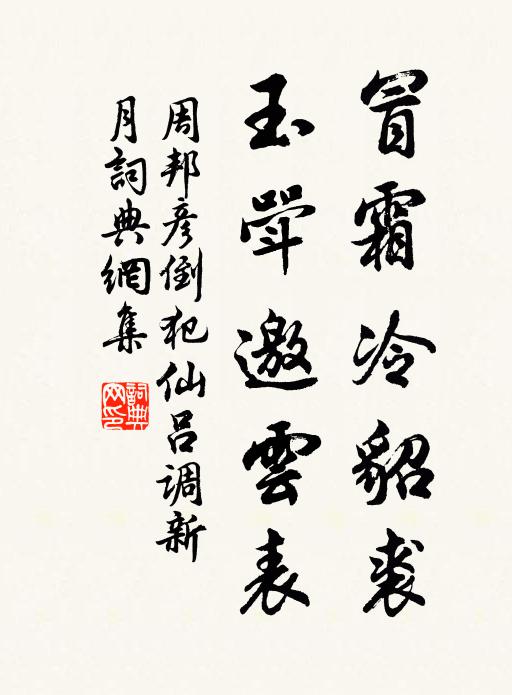 冒霜冷貂裘
玉斝邀雲表
周邦彦倒犯仙吕调新
月詞典網集
詞典网印